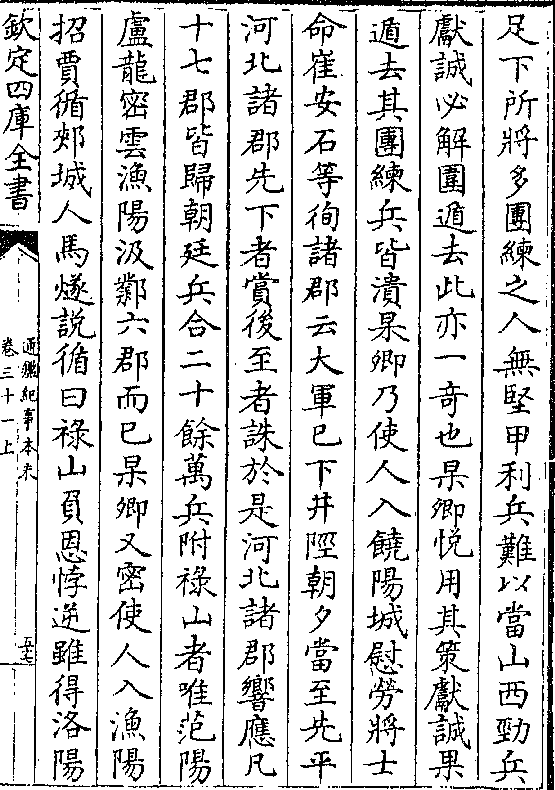 足下所將多團練之人無堅甲利兵難以當山西勁兵
獻誠必解圍遁去此亦一奇也杲卿悅用其策獻誠果
遁去其團練兵皆潰杲卿乃使人入饒陽城慰勞將士
命崔安石等徇諸郡云大軍已下井陘朝夕當至先平
河北諸郡先下者賞後至者誅於是河北諸郡響應凡
十七郡皆歸朝廷兵合二十餘萬兵附祿山者唯范陽
盧龍密雲漁陽汲鄴六郡而已杲卿又密使人入漁陽
招賈循郟城人馬燧說循曰祿山負恩悖逆雖得洛陽
欽定四庫全書
通鑑紀事本末
卷三十一上
五十七